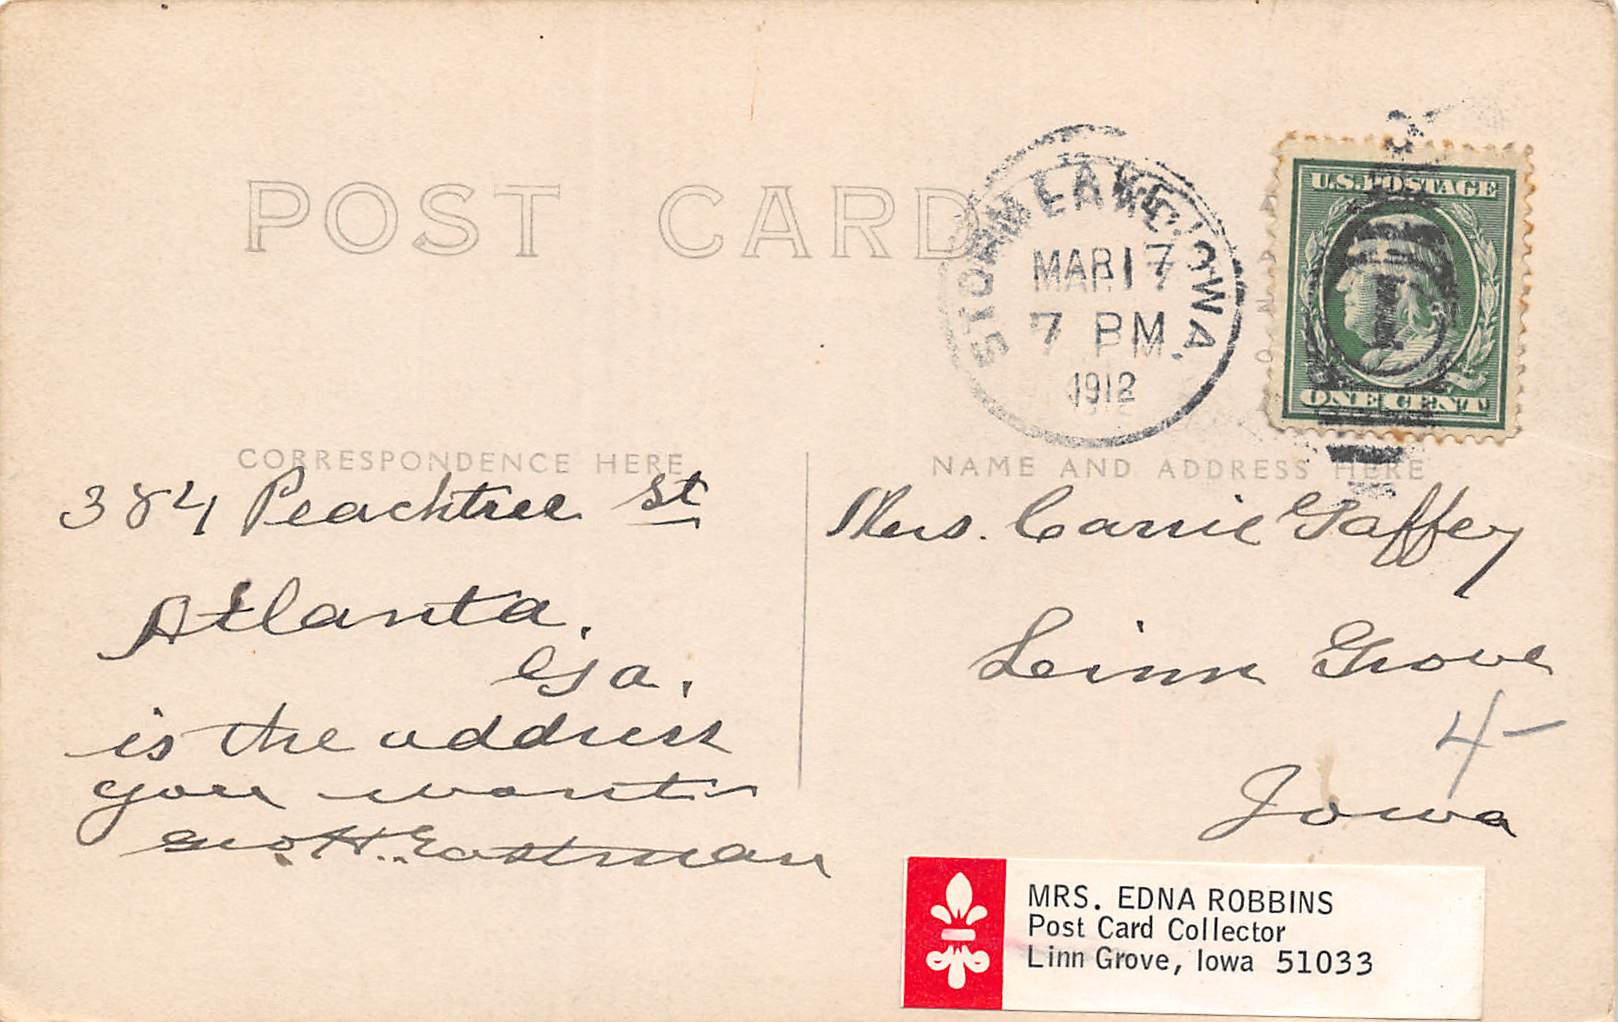 POST CARD
STORM LAKE, IOWA.
MAR 17
7 PM
1912
U.S. POSTAGE
1
ONE CENT
CORRESPONDENCE HERE
NAME AND ADDRESS HERE
384 Peachtree St
Atlanta.
Ga.
is the address
you want -
Geo H. Eastman
Mrs. Carrie Gaffey
Linn Grove
4-
Iowa
MRS. EDNA ROBBINS
Post Card Collector
Linn Grove, Iowa 51033